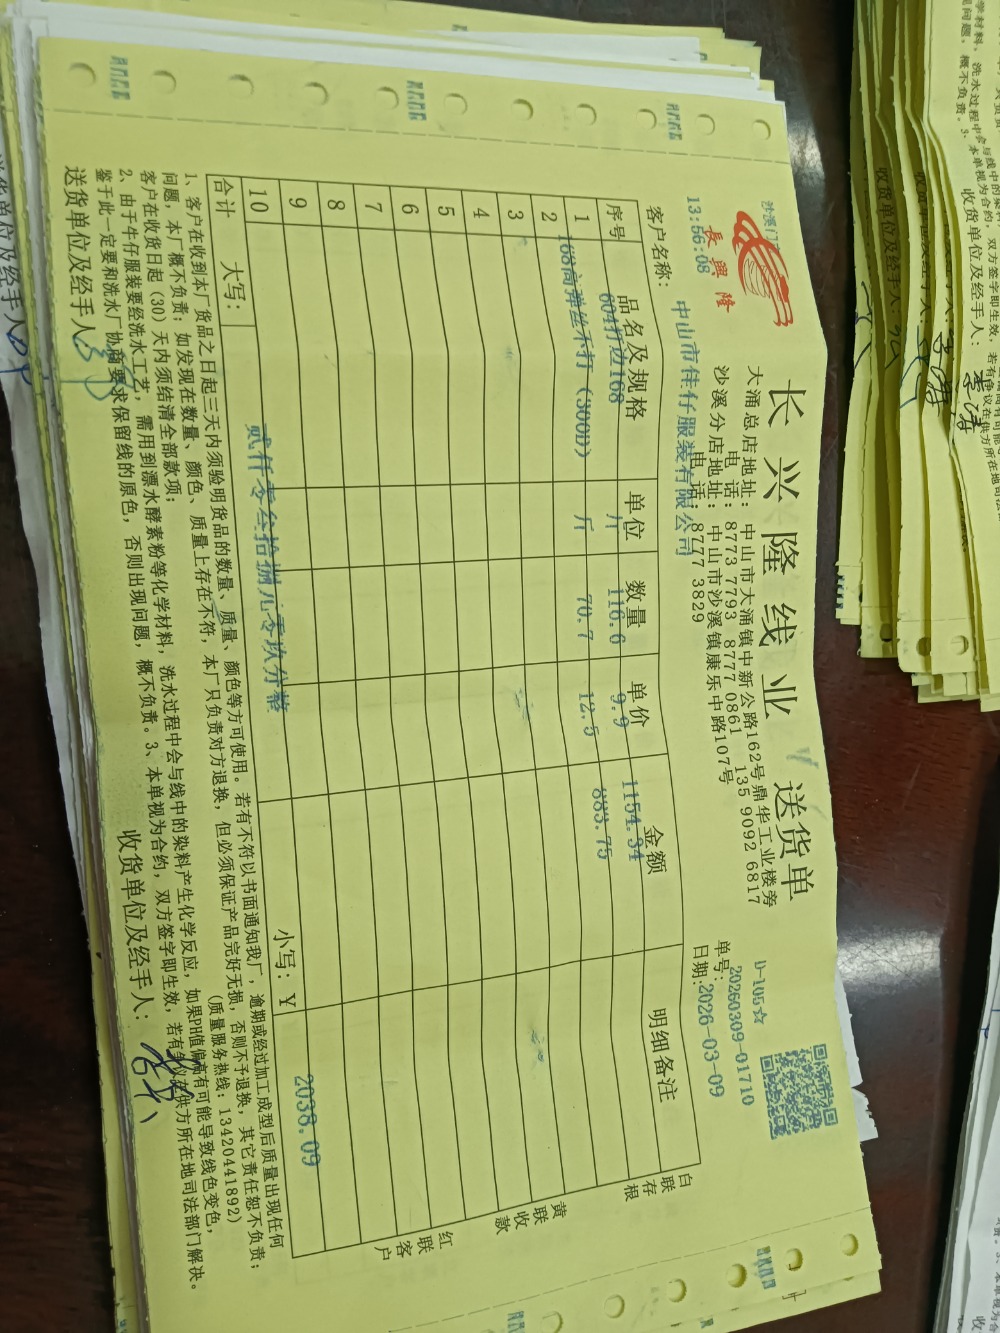 长兴隆线业 送货单
沙溪门
長興隆
13:56:08
大涌总店地址：中山市大涌镇中新公路162号鼎华工业楼旁
电话：8773 7793 8777 0861 135 9092 6817
沙溪分店地址：中山市沙溪镇康乐中路107号
电话：8777 3829
D-105☆
单号：20260309-01710
日期：2026-03-09
客户名称：中山市佳仔服装有限公司
序号 品名及规格 单位 数量 单价 金额 明细备注
1 604打边168 斤 116.6 9.9 1154.34
2 168高弹丝不打（300D） 斤 70.7 12.5 883.75
3
4
5
6
7
8
9
10
合计 大写：贰仟零叁拾捌元零玖分整 小写：￥ 2038.09
白联存根
黄联收款
红联客户
1、客户在收到本厂货品之日起三天内须验明货品的数量、质量、颜色等方可使用。若有不符以书面通知我厂，逾期或经过加工成型后质量出现任何
问题，本厂概不负责；如发现在数量、颜色、质量上存在不符，本厂只负责对方退换，但必须保证产品完好无损，否则不予退换，其它责任恕不负责；
客户在收货日起（30）天内须结清全部款项； （质量服务热线：13420441892）
2、由于牛仔服装要经洗水工艺，需用到漂水酵素粉等化学材料，洗水过程中会与线中的染料产生化学反应，如果PH值偏高有可能导致线色变色，
鉴于此一定要和洗水厂协商要求保留线的原色，否则出现问题，概不负责。3、本单视为合约，双方签字即生效，若有争议在供方所在地司法部门解决。
送货单位及经手人： 收货单位及经手人：
收货单位及经手人：
收货单位及经手人：